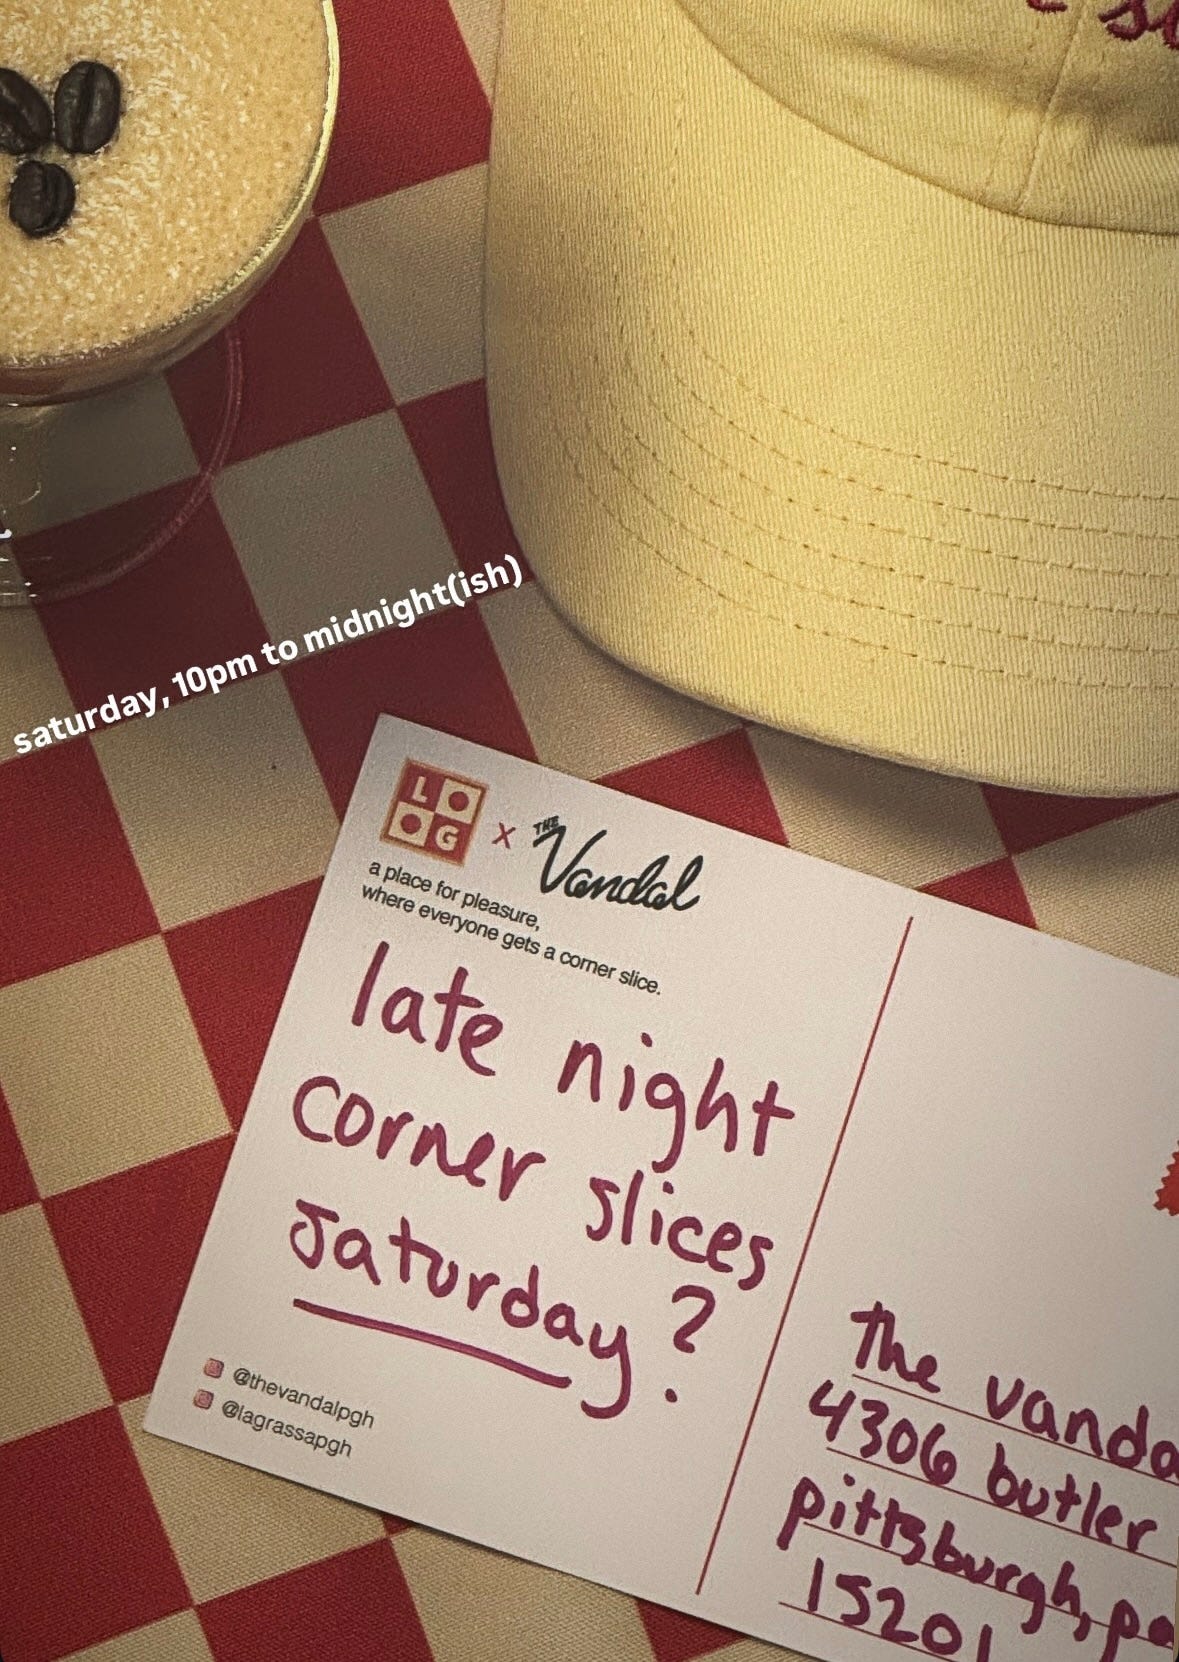 saturday, 10pm to midnight(ish)
LO
OG
x
THE
Vandal
a place for pleasure,
where everyone gets a corner slice.
late night
corner slices
saturday?
@thevandalpgh
@lagrassapgh
The
4306 butler
pittsburgh, pa
15201